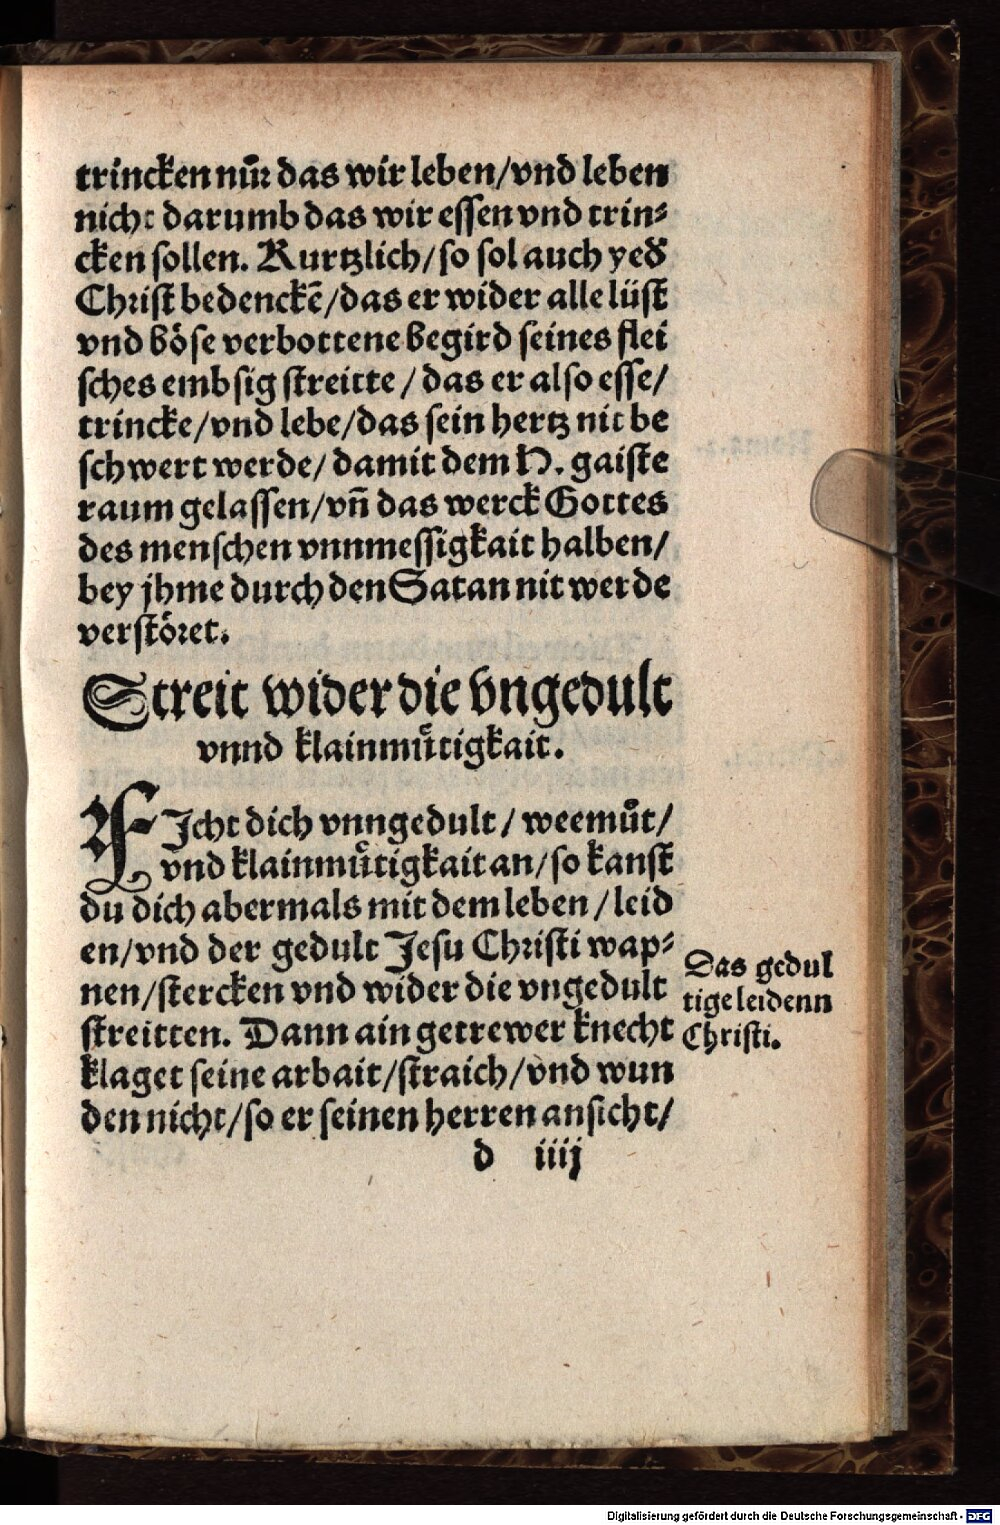 trincken nuͤr das wir leben/vnd leben
nicht darumb das wir essen vnd trin⸗
cken sollen. Kurtzlich/so sol auch yeď
Christ bedenckē/das er wider alle lüst
vnd böse verbottene begird seines flei
sches embsig streitte/das er also esse/
trincke/vnd lebe/das sein hertz nit be
schwert werde/damit dem H. gaiste
raum gelassen/vn̄ das werck Gottes
des menschen vnnmessigkait halben/
bey jhme durch den Satan nit werde
verstöret.
Streit wider die vngedult
vnnd klainmuͤtigkait.
FJcht dich vnngedult/weemuͦt/
vnd klainmuͤtigkait an/so kanst
du dich abermals mit dem leben/leid
en/vnd der gedult Jesu Christi wap⸗
nen/stercken vnd wider die vngedult
streitten. Dann ain getrewer knecht
klaget seine arbait/straich/vnd wun
den nicht/so er seinen herren ansicht/
Das gedul
tige leidenn
Christi.
d iiij
Digitalisierung gefördert durch die Deutsche Forschungsgemeinschaft - DFG